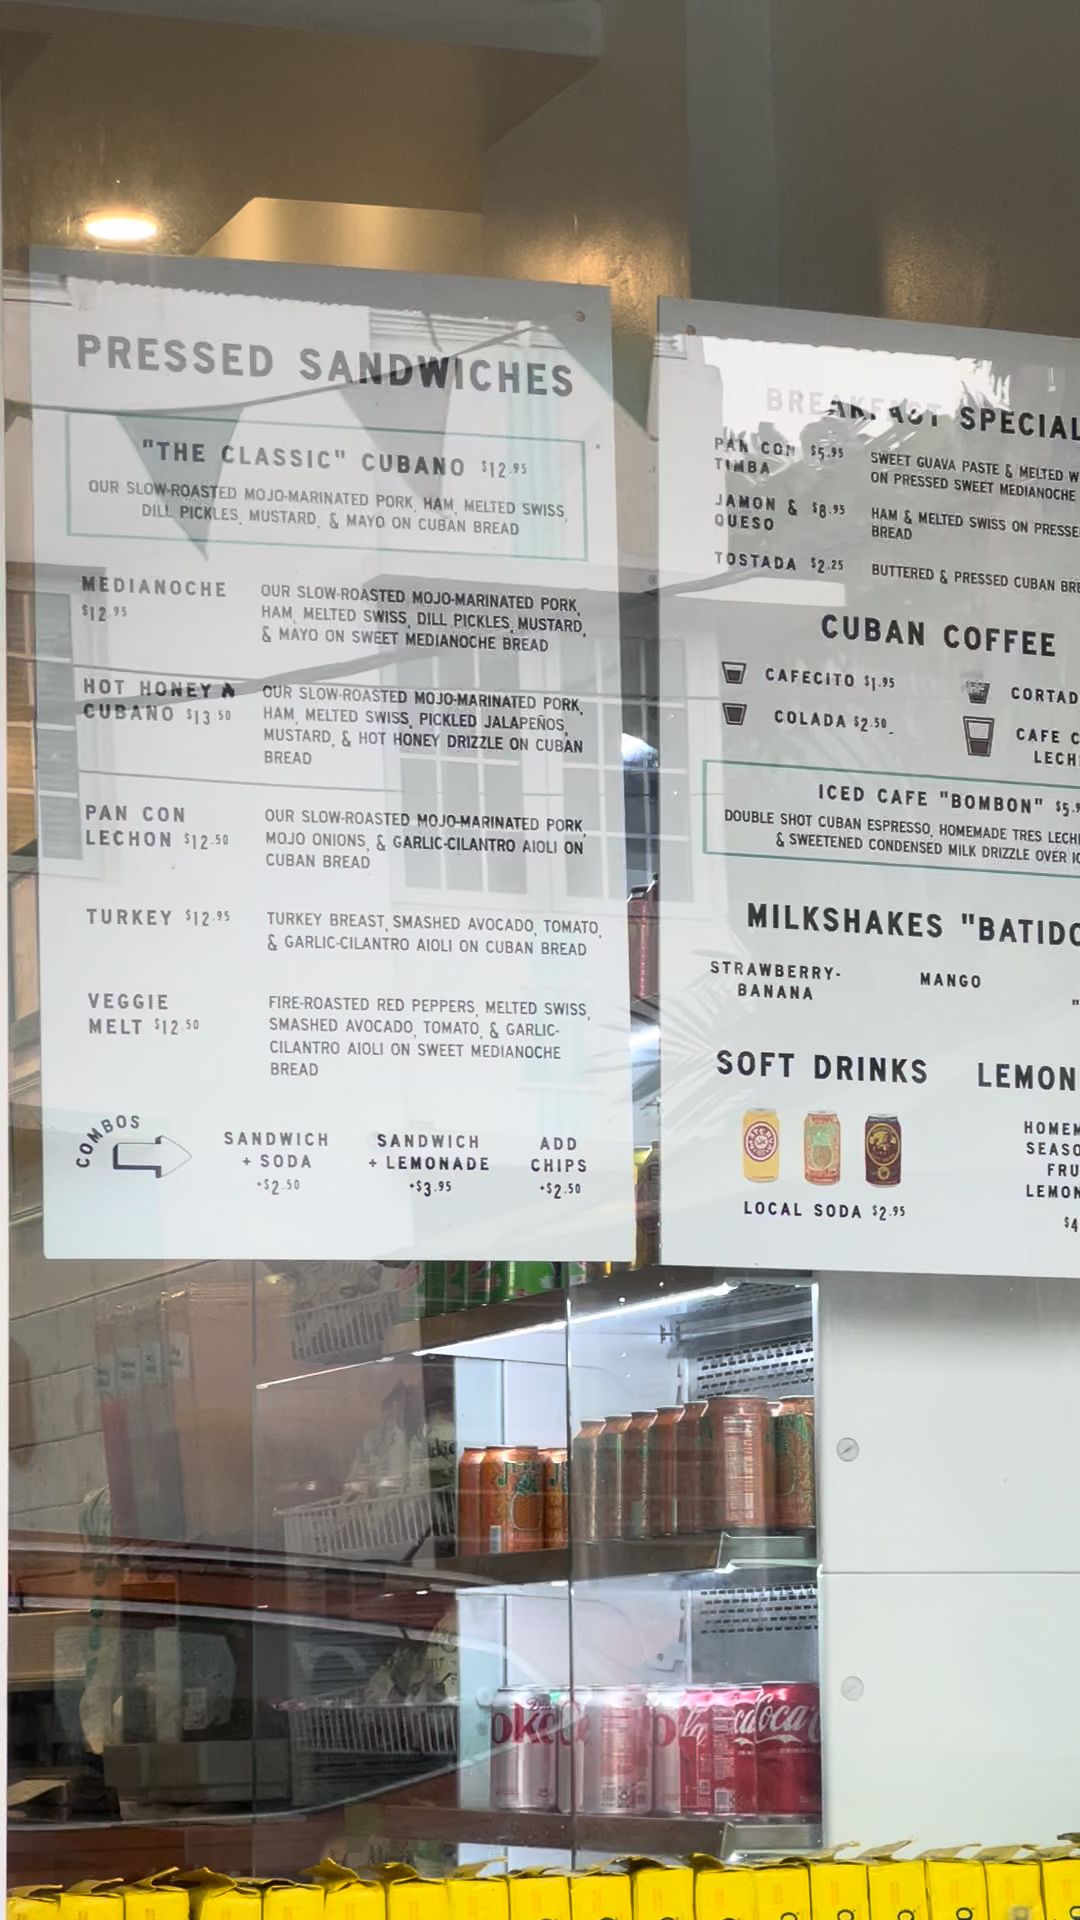 PRESSED SANDWICHES
"THE CLASSIC" CUBANO $12.95
OUR SLOW-ROASTED MOJO-MARINATED PORK, HAM, MELTED SWISS,
DILL PICKLES, MUSTARD, & MAYO ON CUBAN BREAD
MEDIANOCHE
$12.95
OUR SLOW-ROASTED MOJO-MARINATED PORK,
HAM, MELTED SWISS, DILL PICKLES, MUSTARD,
& MAYO ON SWEET MEDIANOCHE BREAD
HOT HONEY
CUBANO $13.50
OUR SLOW-ROASTED MOJO-MARINATED PORK,
HAM, MELTED SWISS, PICKLED JALAPEÑOS,
MUSTARD, & HOT HONEY DRIZZLE ON CUBAN
BREAD
PAN CON
LECHON $12.50
OUR SLOW-ROASTED MOJO-MARINATED PORK,
MOJO ONIONS, & GARLIC-CILANTRO AIOLI ON
CUBAN BREAD
TURKEY $12.95
TURKEY BREAST, SMASHED AVOCADO, TOMATO,
& GARLIC-CILANTRO AIOLI ON CUBAN BREAD
VEGGIE
MELT $12.50
FIRE-ROASTED RED PEPPERS, MELTED SWISS,
SMASHED AVOCADO, TOMATO, & GARLIC-
CILANTRO AIOLI ON SWEET MEDIANOCHE
BREAD
COMBOS
SANDWICH
+ SODA
+$2.50
SANDWICH
+ LEMONADE
+$3.95
ADD
CHIPS
+$2.50
BREAKFAST SPECIAL
PAN CON $5.95
TIMBA
SWEET GUAVA PASTE & MELTED
ON PRESSED SWEET MEDIANOCHE
JAMON & $8.95
QUESO
HAM & MELTED SWISS ON PRESSE
BREAD
TOSTADA $2.25
BUTTERED & PRESSED CUBAN BRE
CUBAN COFFEE
CAFECITO $1.95
CORTAD
COLADA $2.50
CAFE C
LECH
ICED CAFE "BOMBON" $5.9
DOUBLE SHOT CUBAN ESPRESSO, HOMEMADE TRES LECH
& SWEETENED CONDENSED MILK DRIZZLE OVER IC
MILKSHAKES "BATIDO
STRAWBERRY-
BANANA
MANGO
SOFT DRINKS
LOCAL SODA $2.95
LEMON
HOMEM
SEASO
FRU
LEMON
$4
Coca